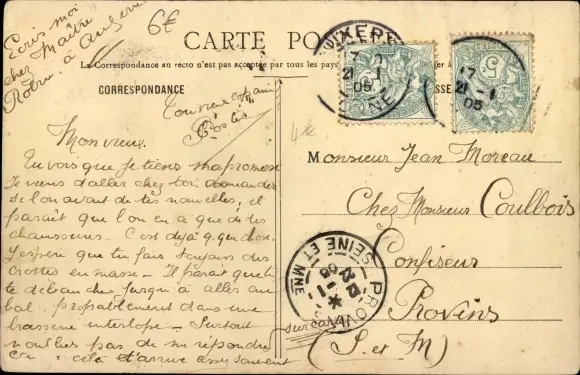 Ecris moi
chez Maître
à Auxerre
6€
CARTE POS
La Correspondance au recto n'est pas acceptée par tous les pays
CORRESPONDANCE
Ton vieux copain
4€
Mon vieux.
Tu vois que je tiens ma promesse
Je viens d'aller chez toi demander
si l'on avait de tes nouvelles, il
parait que l'on en a que de tes
chaussures. C'est déjà q.que chose.
J'espère que tu fais toujours des
crottes en masse. Il parait que tu
te débauches jusqu'à aller au
bal, probablement dans une
brasserie interlope. Surtout
n'oublies pas de me répondre
car cela t'arrive assez souvent
sur ça
AUXERRE
17
21 - 1
05
YONNE
17
21 - 1
05
Monsieur Jean Moreau
Chez Monsieur Coulbois
Confiseur
à
Provins
(S. et M)
PROVINS
SEINE ET MNE
12
22 - 1
05